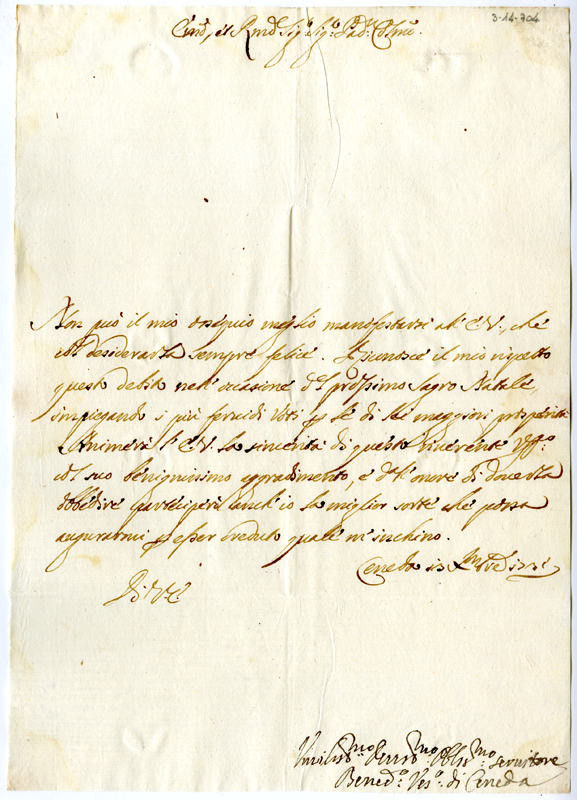 3-14-704
Em̃o, et Rmo Sigr. Sigr. Padn. Colmo.
Non può il mio ossequio meglio manifestarsi all' E.V., che
col desiderarla sempre felice. Riconosce il mio rispetto
questo debito nell' occasione del prossimo Sagro Natale,
impiegando i più fervidi voti p le di lei maggiori prosperità.
Animerà l' E.V. la sincerità di questo riverente Uffo.
col suo benignissimo aggradimento, e dall' onore di doverla
obbedire parteciperò anch' io la miglior sorte che possa
augurarmi p esser creduto quale m' inchino.
Ceneda in Xmbre
Di V. E.
Umilissmo Devmo Obblmo Servitore
Bened.o Ves.o di Ceneda